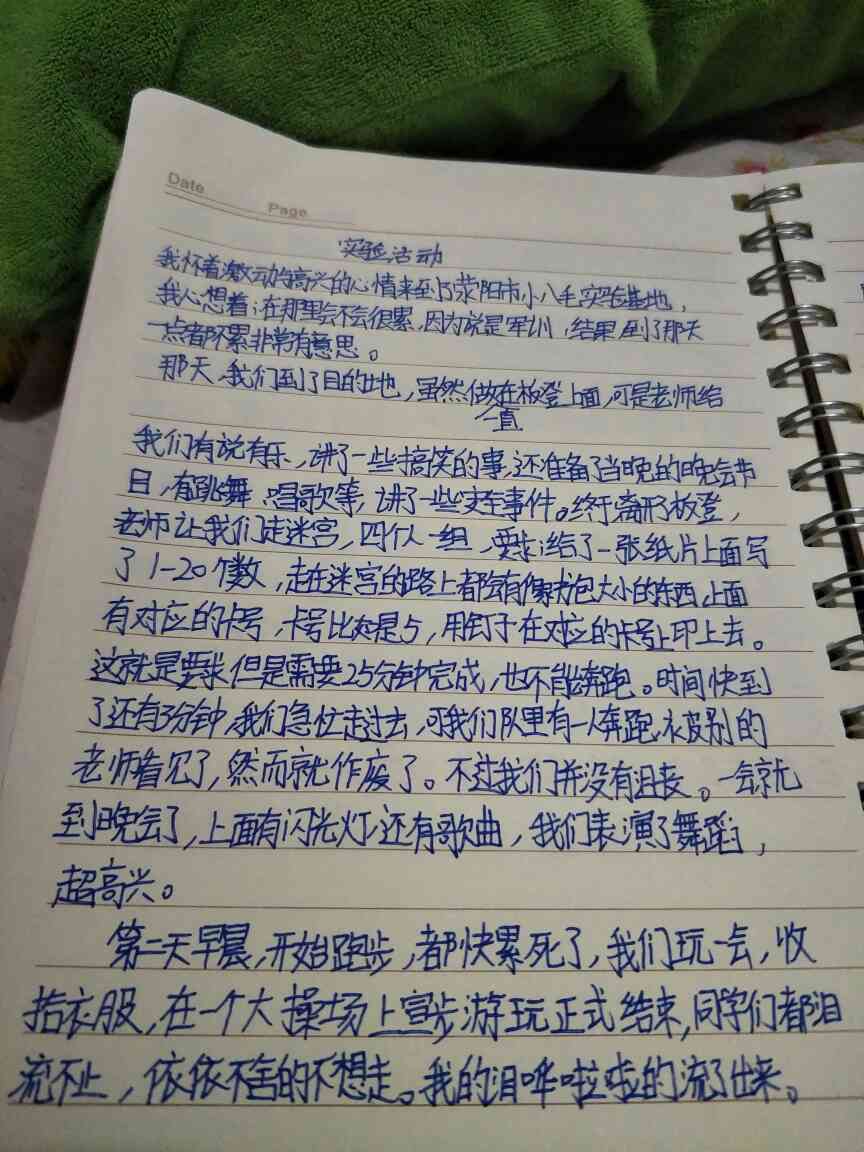 Date
Page
实验活动
我怀着激动的高兴的心情来到了荥阳市小八手实验基地，
我心想着：在那里会不会很累，因为说是军训，结果到了那天
一点都不累非常有意思。
那天，我们到了目的地，虽然做在板登上面，可是老师给
一直
我们有说有乐，讲了一些搞笑的事，还准备了当晚的晚会节
目，有跳舞、唱歌等，讲了一些安全事件。终于离开板登，
老师让我们走迷宫，四个人一组，要求：给了一张纸片上面写
了1-20个数，走在迷宫的路上都会有像书包大小的东西，上面
有对应的卡号，卡号比如是5，用钉子在对应的卡号上印上去。
这就是要求但是需要25分钟完成，也不能奔跑。时间快到
了还有3分钟，我们急忙走过去，可我们队里有一人奔跑，被别的
老师看见了，然而就作废了。不过我们并没有沮丧。一会就
到晚会了，上面有闪光灯还有歌曲，我们表演了舞蹈，
超高兴。
第二天早晨，开始跑步，都快累死了，我们玩一会，收
拾衣服，在一个大操场上宣步游玩正式结束，同学们都泪
流不止，依依不舍的不想走。我的泪哗啦啦的流了出来。